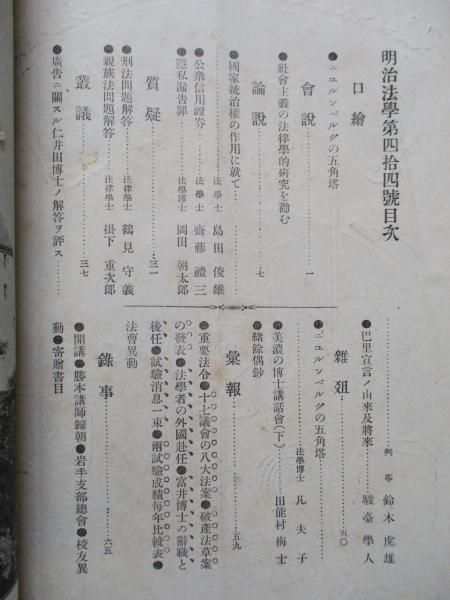 明治法學第四拾四號目次
口繪
●ニユルンベルグの五角塔
會說……一
●社會主義の法律學的硏究を勸む
論說……七
●國家統治權の作用に就て……法學士 島田俊雄
●公衆信用證券……法學士 齋藤禮三
●隱私漏告罪……法學博士 岡田朝太郎
質疑……三一
●刑法問題解答……法律學士 鶴見守義
●親族法問題解答……法律學士 掛下重次郎
叢議……三七
●廣告ニ關スル仁井田博士ノ解答ヲ評ス……
鈴木虎雄
●巴里宣言ノ由來及將來……駿臺學人
雜俎……五〇
●ニユルンベルグの五角塔……法學博士 凡夫子
●美濃の博士講話會(下)……田能村梅士
●緖餘偶鈔
彙報……五九
●重要法令●十七議會の八大法案●破產法草案
の發表●法學者の外國赴任●富井博士の辭職と
後任●試驗消息一束●兩試驗成績每年比較表●
法曹異動
錄事……六五
●開講●勝本講師歸朝●岩手支部總會●校友異
動●寄贈書目